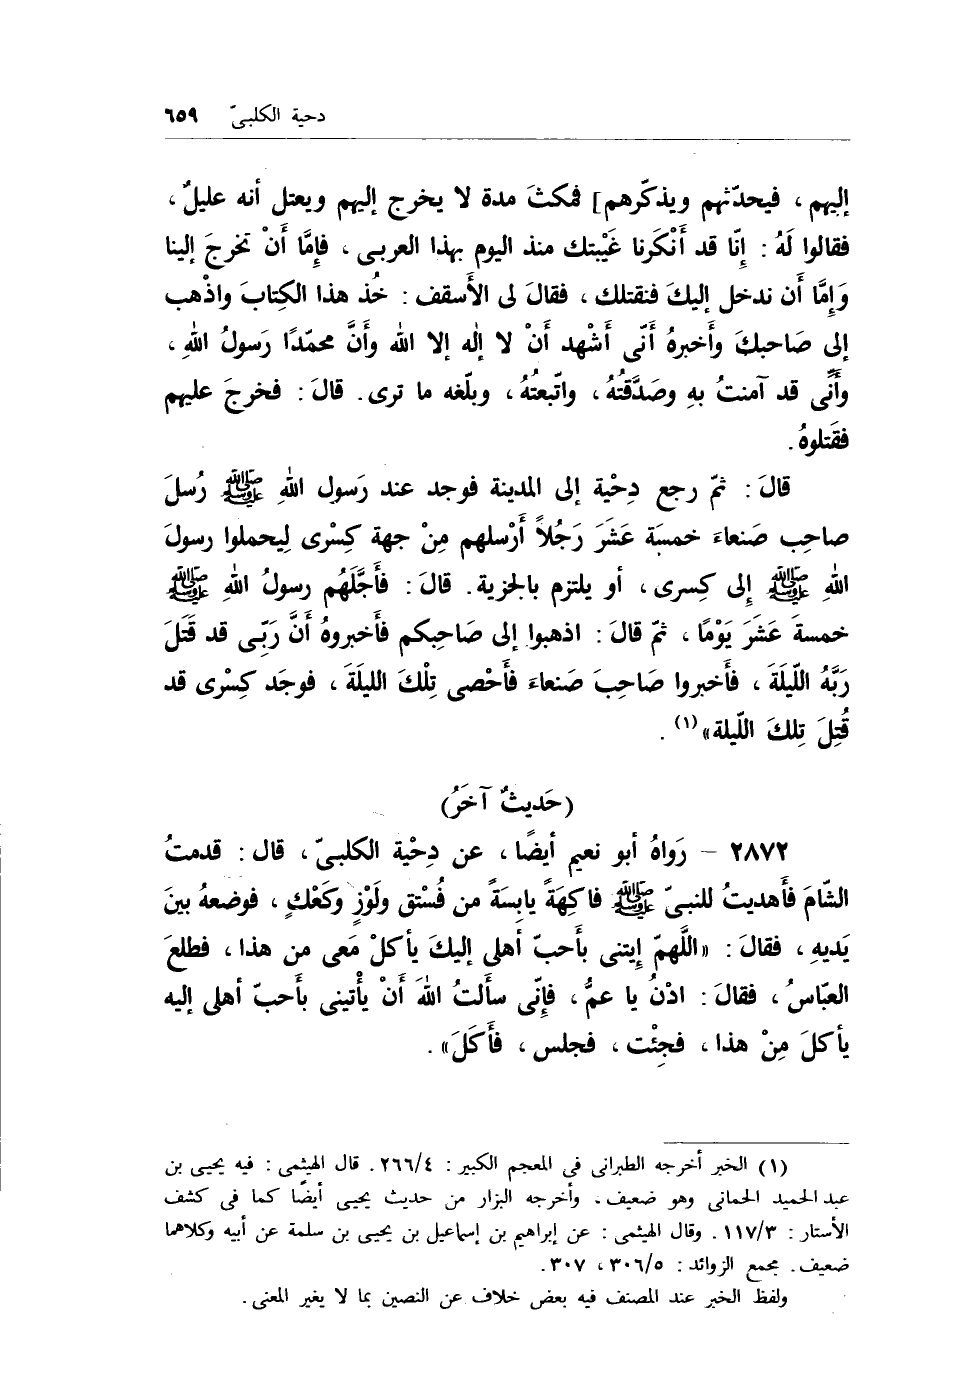 دحية الكلبىّ ٦٥٩
إليهم ، فيحدّثهم ويذكّرهم] فمكثَ مدة لا يخرج إليهم ويعتل أنه عليلٌ ،
فقالوا لَهُ : إنّا قد أَنْكَرنا غَيْبتك منذ اليوم بهذا العربى ، فإمَّا أَنْ تخرجَ إلينا
وَإِمَّا أَن ندخل إليكَ فنقتلك ، فقالَ لى الأَسقف : خُذ هذا الكِتابَ واذْهب
إلى صَاحبكَ وأَخبرهُ أَنّى أَشْهد أَنْ لا إلٰه إلا الله وأَنَّ محمّدًا رَسولُ اللهِ ،
وأَنِّى قد آمنتُ بهِ وصَدَّقتُهُ ، واتّبعتُهُ ، وبلّغه ما ترى . قالَ : فخرجَ عليهم
فقَتلوهُ .
قالَ : ثمّ رجع دِحْية إلى المدينة فوجد عند رَسول اللهِ ﷺ رُسلَ
صاحِب صَنعاءَ خمسَة عَشَرَ رَجُلاً أَرْسلهم مِنْ جهة كِسْرى لِيحملوا رسولَ
اللهِ ﷺ إِلى كِسرى ، أو يلتزم بالجزية . قالَ : فأَجَّلَهُم رسولُ اللهِ ﷺ
خمسةَ عَشَرَ يَوْمًا ، ثمّ قالَ : اذهبوا إلى صَاحِبكم فأَخبروهُ أَنَّ رَبّى قد قَتَلَ
رَبَّهُ اللّيلَةَ ، فأَخبروا صَاحِبَ صَنعاءَ فأَحْصى تِلْكَ الليلَةَ ، فوجَد كِسْرى قد
قُتِلَ تِلكَ اللّيلة»(١) .
(حَديثٌ آخَرُ)
٢٨٧٢ – رَواهُ أبو نعيم أيضًا ، عن دِحْية الكلبىّ ، قال : قدمتُ
الشّامَ فأَهديتُ للنبىّ ﷺ فاكِهَةً يابِسَةً من فُسْتق ولَوْزٍ وكَعْكٍ ، فوضعهُ بينَ
يَديهِ ، فقالَ : «اللَّهمّ إيتنى بأَحبّ أهلى إليكَ يأكلْ مَعى من هذا ، فطلعَ
العبّاسُ ، فقالَ : ادْنُ يا عمُّ ، فإنّى سأَلتُ اللهَ أَنْ يأْتينى بأَحبّ أهلى إليه
يأكلَ مِنْ هذا ، فجِئْت ، فجلس ، فأَكَلَ» .
(١) الخبر أخرجه الطبرانى فى المعجم الكبير : ٢٦٦/٤ . قال الهيثمى : فيه يحيى بن
عبد الحميد الحمانى وهو ضعيف . وأخرجه البزار من حديث يحيى أيضًا كما فى كشف
الأستار : ١١٧/٣ . وقال الهيثمى : عن إبراهيم بن إسماعيل بن يحيى بن سلمة عن أبيه وكلاهما
ضعيف . مجمع الزوائد : ٣٠٦/٥ ، ٣٠٧ .
ولفظ الخبر عند المصنف فيه بعض خلاف عن النصين بما لا يغير المعنى .